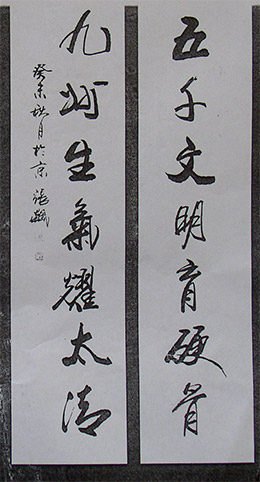 五千文明育硬骨
九州生氣耀太清
癸未 月於京 張